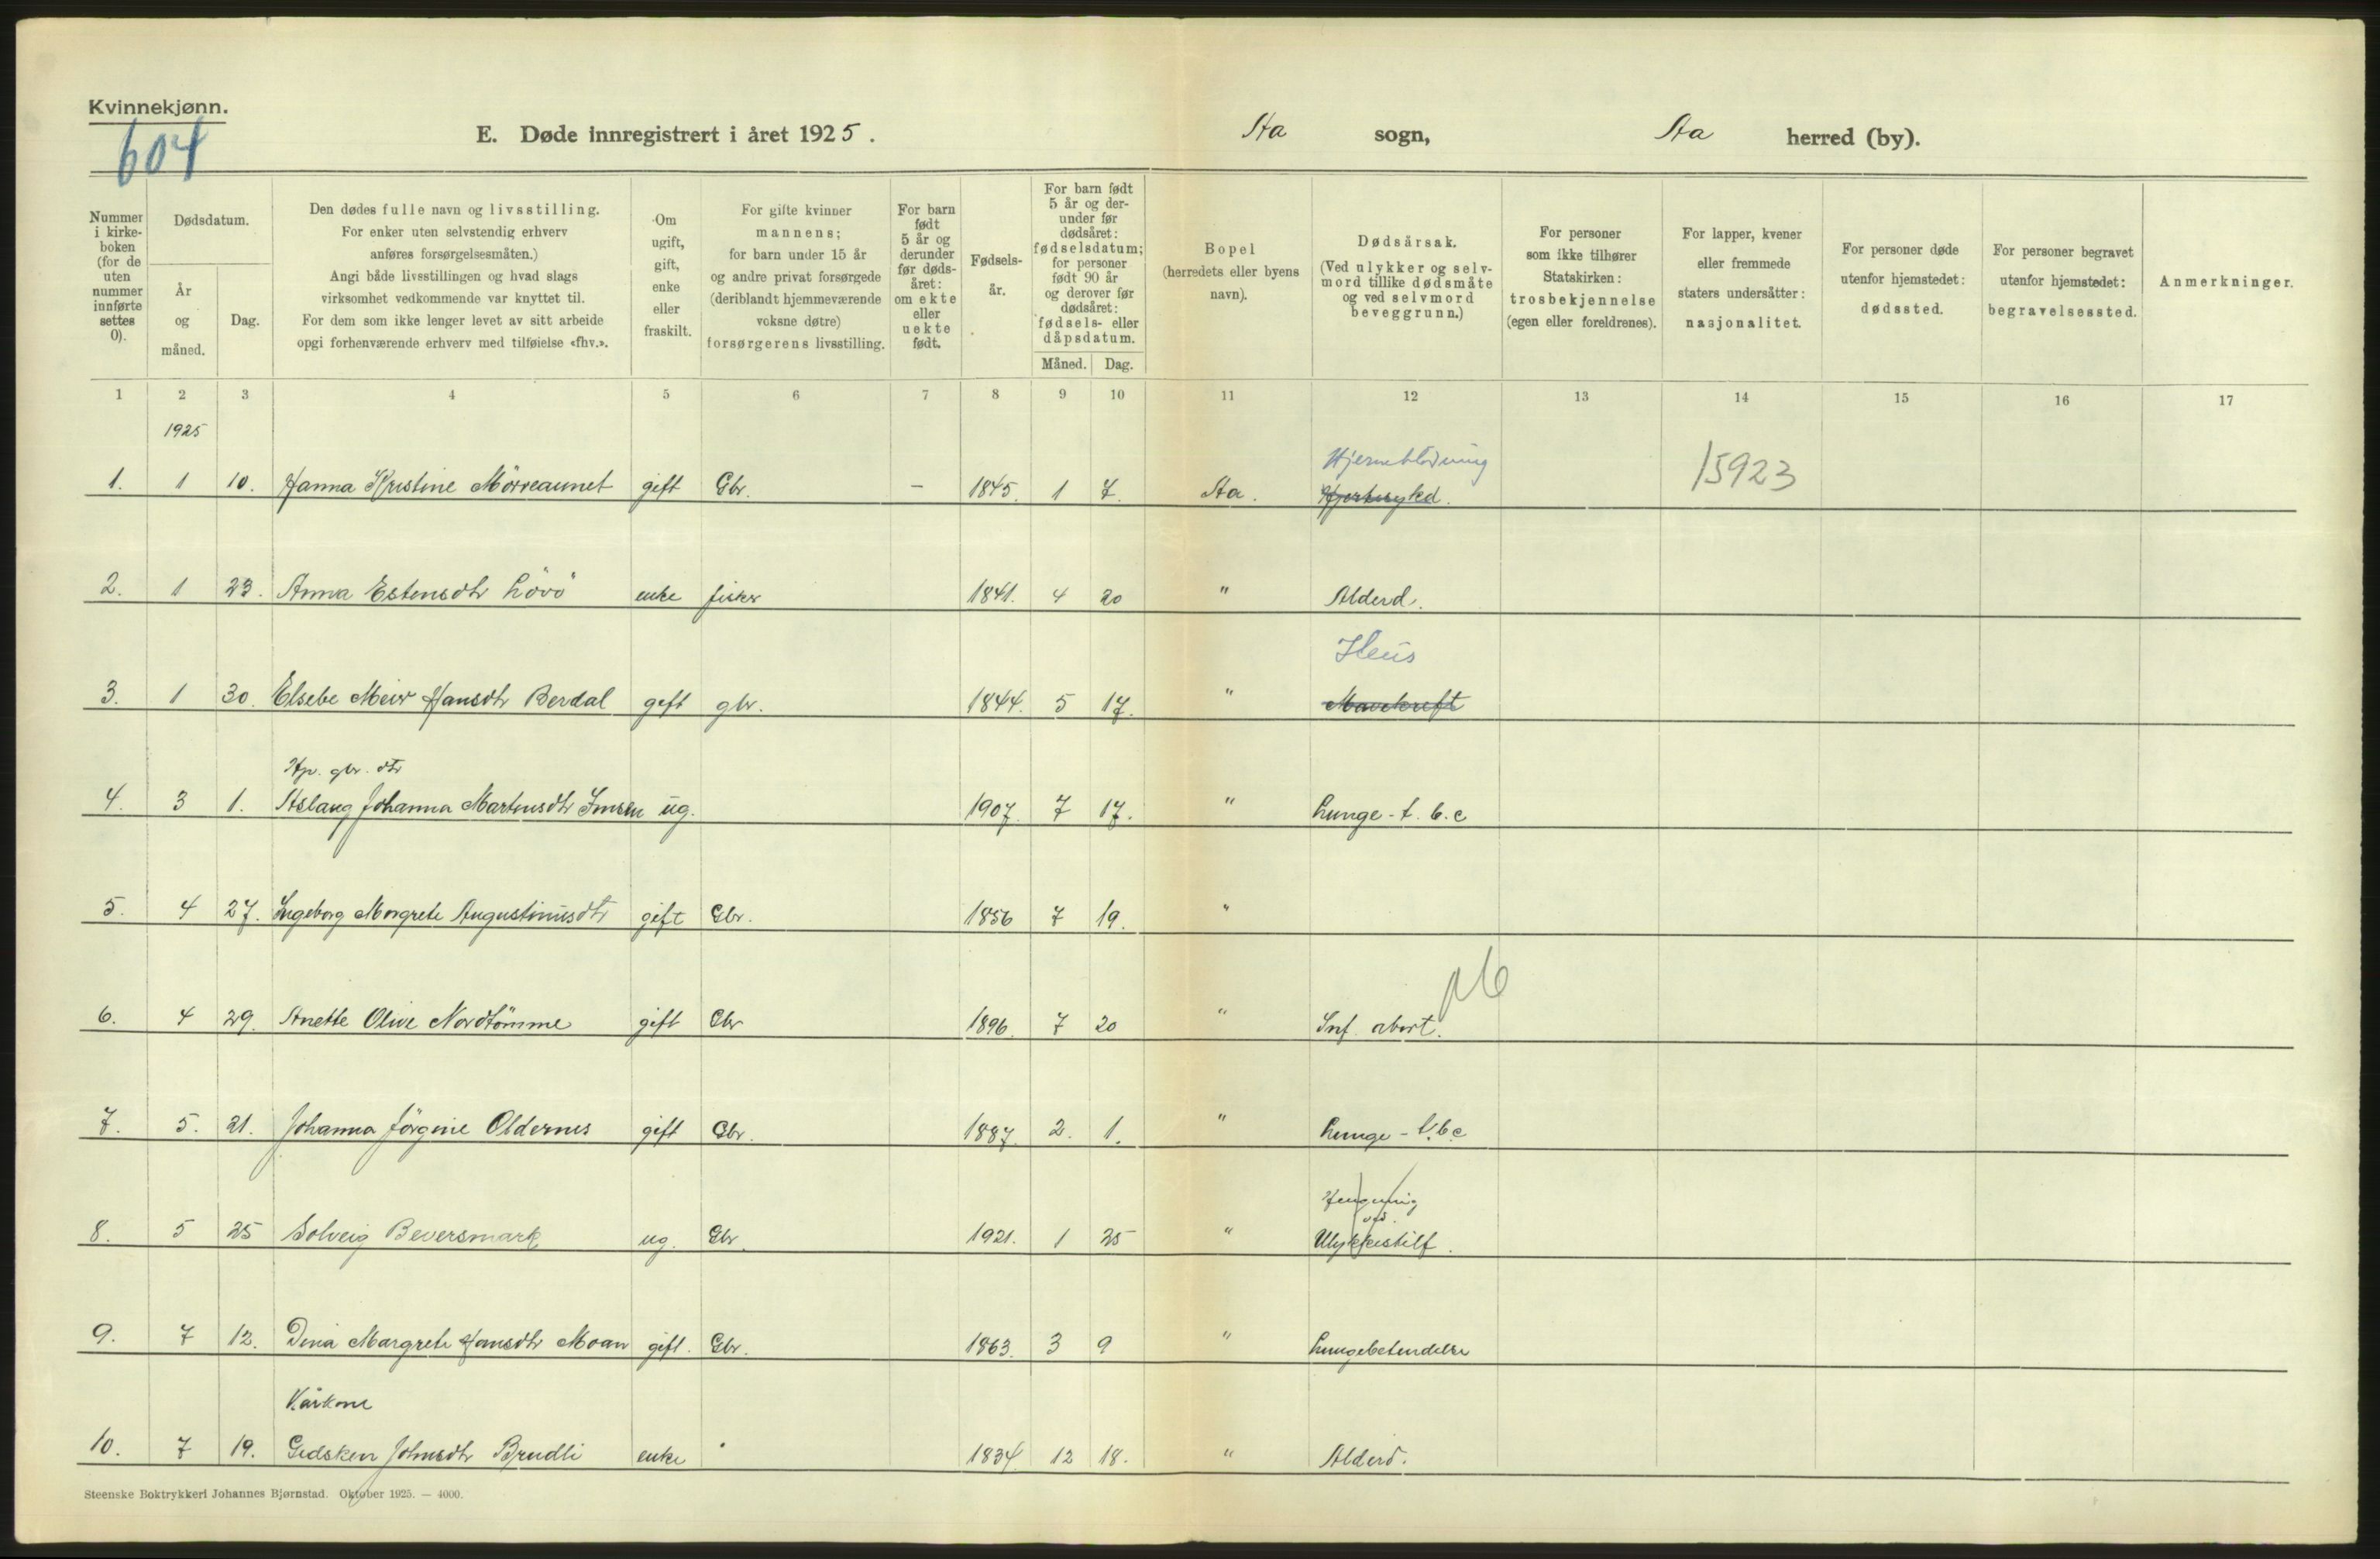 Kvinnekjønn.
604
E. Døde innregistrert i året 1925.
Aa sogn, Aa herred (by).
Nummer i kirkeboken (for de uten nummer innførte settes 0).
Dødsdatum.
År og måned.
Dag.
Den dødes fulle navn og livsstilling.
For enker uten selvstendig erhverv
anføres forsørgelsesmåten.)
Angi både livsstillingen og hvad slags
virksomhet vedkommende var knyttet til.
For dem som ikke lenger levet av sitt arbeide
opgi forhenværende erhverv med tilføielse «fhv.».
Om ugift, gift, enke eller fraskilt.
For gifte kvinner
mannens;
for barn under 15 år
og andre privat forsørgede
(deriblandt hjemmeværende
voksne døtre)
forsørgerens livsstilling.
For barn født 5 år og derunder før dødsåret: om ekte eller uekte født.
Fødselsår.
For barn født 5 år og derunder før dødsåret: fødselsdatum; for personer født 90 år og derover før dødsåret: fødsels- eller dåpsdatum.
Måned. Dag.
Bopel
(herredets eller byens
navn).
Dødsårsak.
(Ved ulykker og selvmord tillike dødsmåte og ved selvmord beveggrunn.)
For personer
som ikke tilhører
Statskirken:
trosbekjennelse
(egen eller foreldrenes).
For lapper, kvener
eller fremmede
staters undersåtter:
nasjonalitet.
For personer døde
utenfor hjemstedet:
dødssted.
For personer begravet
utenfor hjemstedet:
begravelsessted.
Anmerkninger.
1 2 3 4 5 6 7 8 9 10 11 12 13 14 15 16 17
1925
Hjerneblødning
15923
1. 1 10. Hanna Kristine Mörreaunet gift Gbr. — 1845. 1 7. Aa. Hjertesykd.
2. 1 23. Anna Estensdtr Lövö enke fisker 1841. 4 20 " Alderd.
Ileus
3. 1 30. Elsebe Meier Hansdtr Berdal gift gbr. 1844. 5 17. " Mavekreft
Hp. gbr. dtr
4. 3 1. Aslaug Johanna Martinsdtr Imsen ug. 1907. 7 17. " Lunge-t.b.c
5. 4 27. Ingeborg Margrete Augustinusdtr gift Gbr. 1856 7 19. "
6. 4 29. Anette Olive Nordtömme gift Gbr 1896. 7 20 " Inf. abort.
7. 5. 21. Johanna Jörgine Oldernes gift Gbr. 1887. 2. 1. " Lunge-t.b.c
ved
8. 5 25 Solveig Beversmark ug. Gbr. 1921. 1 25 " Ulykkestilf.
9. 7 12. Dina Margrete Hansdtr Moan gift. Gbr. 1863. 3 9 " Lungebetendelse
Kårkone
10. 7 19. Gidsken Johnsdtr Brudli enke 1834. 12 18. " Alderd.
Steenske Boktrykkeri Johannes Bjørnstad. Oktober 1925. — 4000.